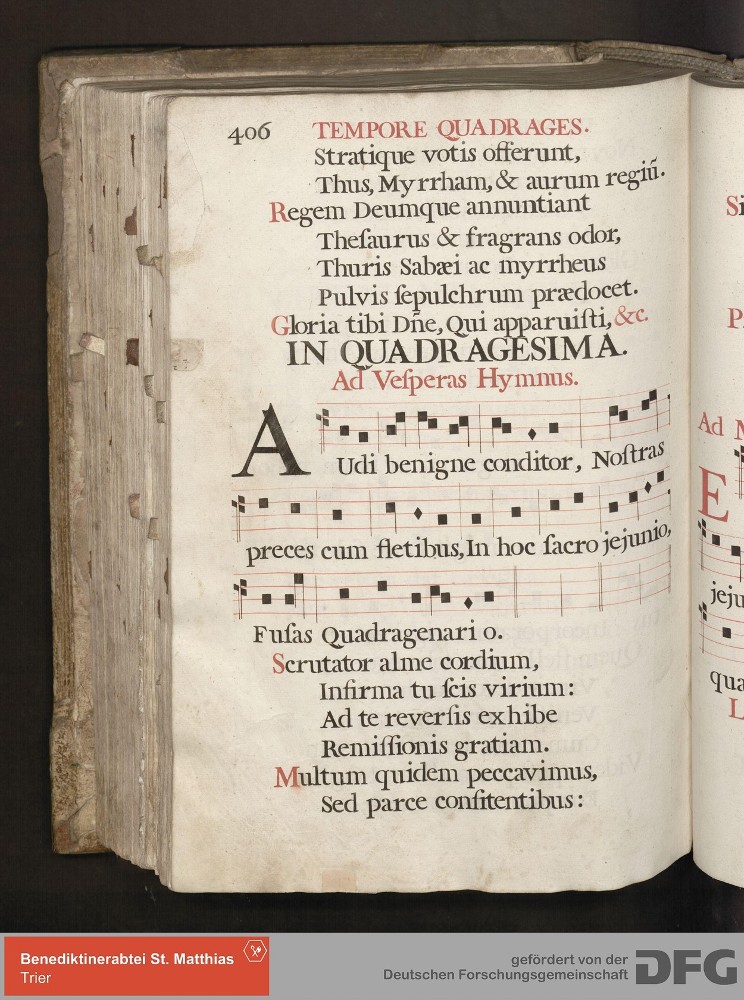 406 TEMPORE QUADRAGES.
Stratique votis offerunt,
Thus, Myrrham, & aurum regiũ.
Regem Deumque annuntiant
Theſaurus & fragrans odor,
Thuris Sabæi ac myrrheus
Pulvis ſepulchrum prædocet.
Gloria tibi Dñe, Qui apparuiſti, &c.
IN QUADRAGESIMA.
Ad Veſperas Hymnus.
AUdi benigne conditor, Noſtras
preces cum fletibus, In hoc ſacro jejunio,
Fuſas Quadragenario.
Scrutator alme cordium,
Infirma tu ſcis virium:
Ad te reverſis exhibe
Remiſſionis gratiam.
Multum quidem peccavimus,
Sed parce confitentibus:
Si
P
Ad
E
jeju
qua
L
Benediktinerabtei St. Matthias
Trier
gefördert von der
Deutschen Forschungsgemeinschaft
DFG